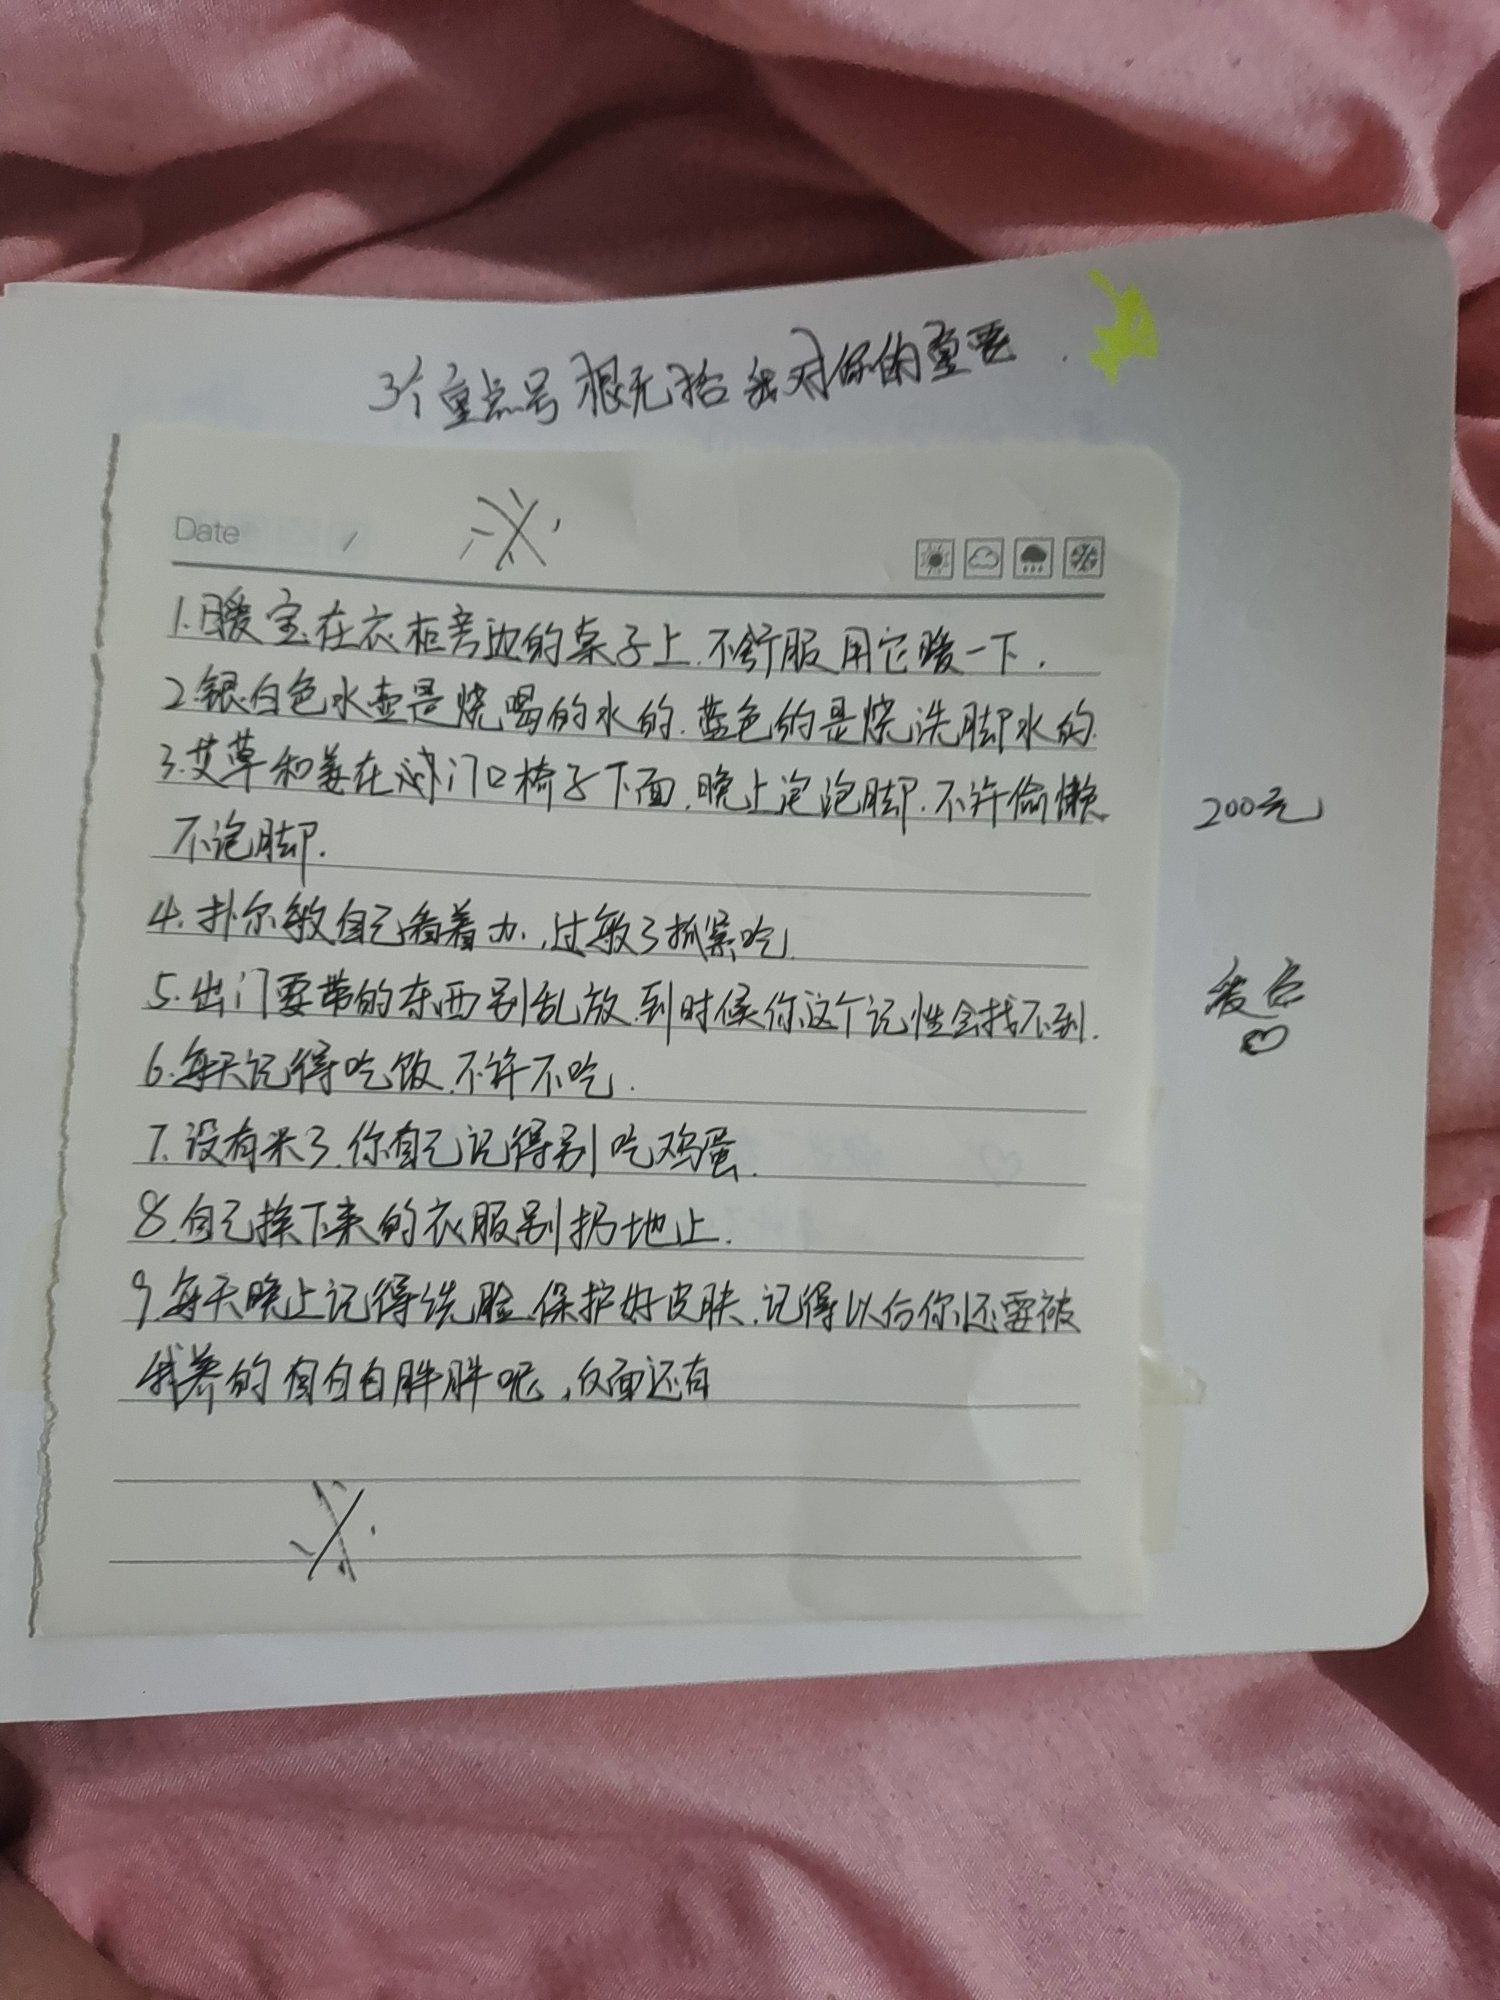 3个重点号 根无括 我对你的重要
Date
1.暖宝在衣柜旁边的桌子上.不舒服用它暖一下.
2.银白色水壶是烧喝的水的.蓝色的是烧洗脚水的.
3.艾草和姜在 门口椅子下面.晚上泡泡脚.不许偷懒
不泡脚.
4.扑尔敏自己看着办.,过敏了抓紧吃.
200元
5.出门要带的东西别乱放.到时候你这个记性会找不到.
6.每天记得吃饭.不许不吃.
7.没有米了.你自己记得别吃鸡蛋.
8.自己换下来的衣服别扔地上.
9.每天晚上记得洗脸.保护好皮肤.记得以后你还要被
我养的 白白胖胖呢,反面还有